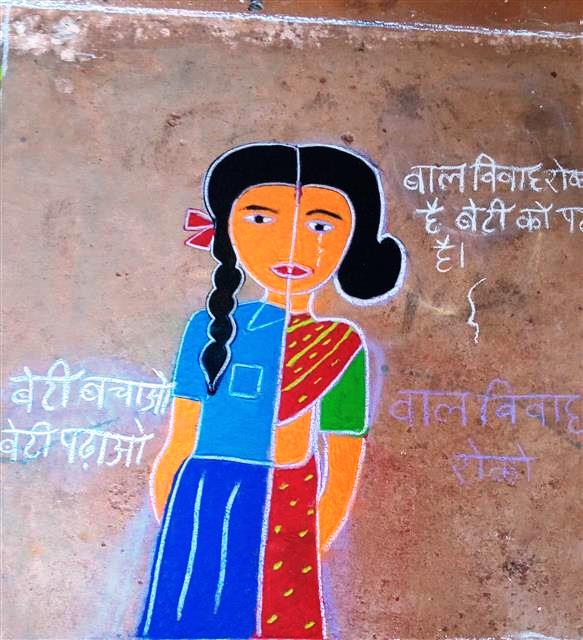 बाल विवाह
है बेटी को
है।
बेटी बचाओ
बेटी पढ़ाओ
बाल विवाह
रोको